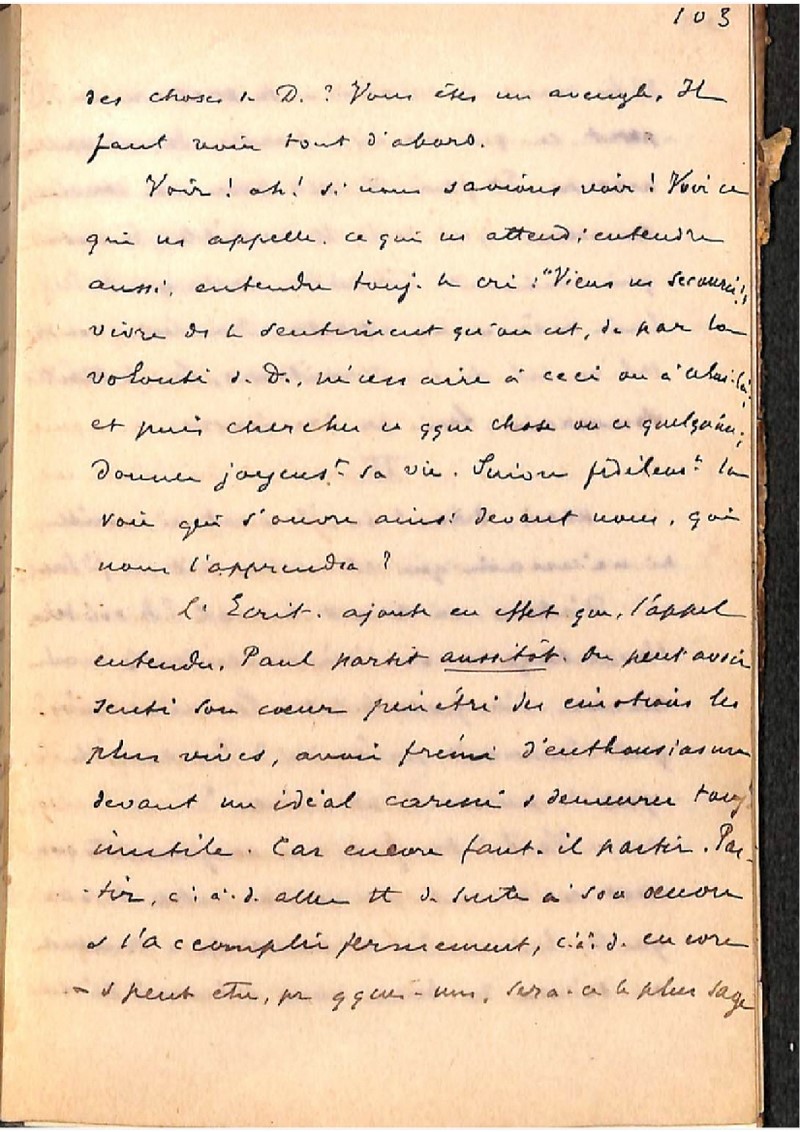 103
des choses de D. ? Vous êtes un aveugle. Il
faut voir tout d'abord.
Voir ! ah ! si nous savions voir ! Voir ce
qui ns appelle. ce qui ns attend ; entendre
aussi, entendre touj. le cri : "Viens ns secourir !,
vivre ds le sentiment qu'on est, de par la
volonté de D., nécessaire à ceci ou à celui-là ;
et puis chercher ce qque chose ou ce quelqu'un ;
donner joyeusᵗ sa vie. Suivre fidèlemᵗ la
voie qui s'ouvre ainsi devant nous, qui
nous l'apprendra ?
L'Ecrit. ajoute en effet que, l'appel
entendu, Paul partit aussitôt. On peut avoir
senti son coeur pénétré des émotions les
plus vives, avoir frémi d'enthousiasme
devant un idéal caressé & demeurer touj
inutile. Car encore faut-il partir. Par-
tir, c'.à.d. aller tt de suite à son oeuvre
& l'accomplir fermement, c'.à.d. encore
- & peut être, pr qques-uns, sera-ce le plus sage